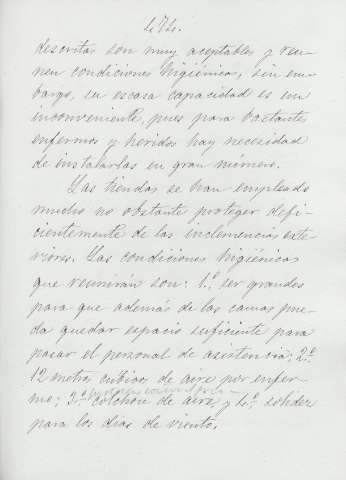 474.
descritas son muy aceptables y reu-
nen condiciones higiénicas, sin em-
bargo, su escasa capacidad es un
inconveniente, pues para bastantes
enfermos y heridos hay necesidad
de instalarlas en gran número.
Las tiendas se han empleado
mucho no obstante proteger defi-
cientemente de las inclemencias exte-
riores. Las condiciones higiénicas
que reunirán son: 1.º ser grandes
para que además de las camas pue-
da quedar espacio suficiente para
pasar el personal de asistencia; 2.º
12 metros cúbicos de aire por enfer-
mo; 3.º colchón de aire y 4.º solidez
para los días de viento.